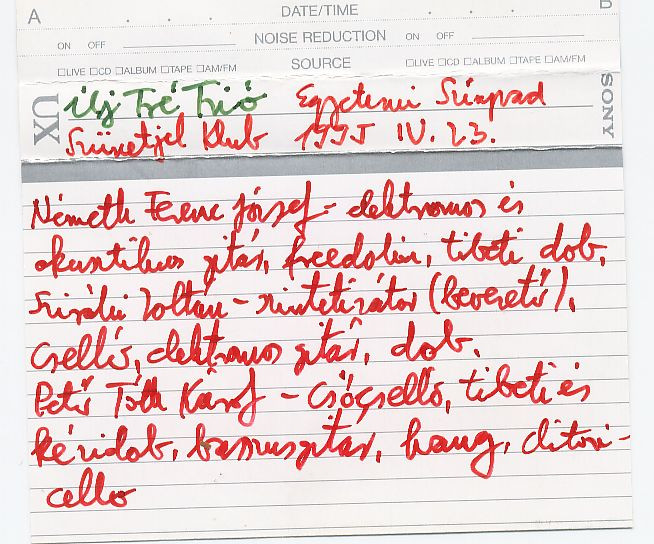 A DATE/TIME B
ON OFF NOISE REDUCTION ON OFF
□LIVE □CD □ALBUM □TAPE □AM/FM SOURCE □LIVE □CD □ALBUM □TAPE □AM/FM
UX Új Tré Trió Egyetemi Színpad SONY
Szünetjel Klub 1995 IV. 23.
Németh Ferenc József - elektromos és
akusztikus gitár, freedolin, tibeti dob,
Zoltán - szintetizátor (beveretű),
Csellós, elektromos gitár, dob.
Pető Tóth Károly - Csőcselló, tibeti és
kézidob, basszusgitár, hang, clitori-
cello